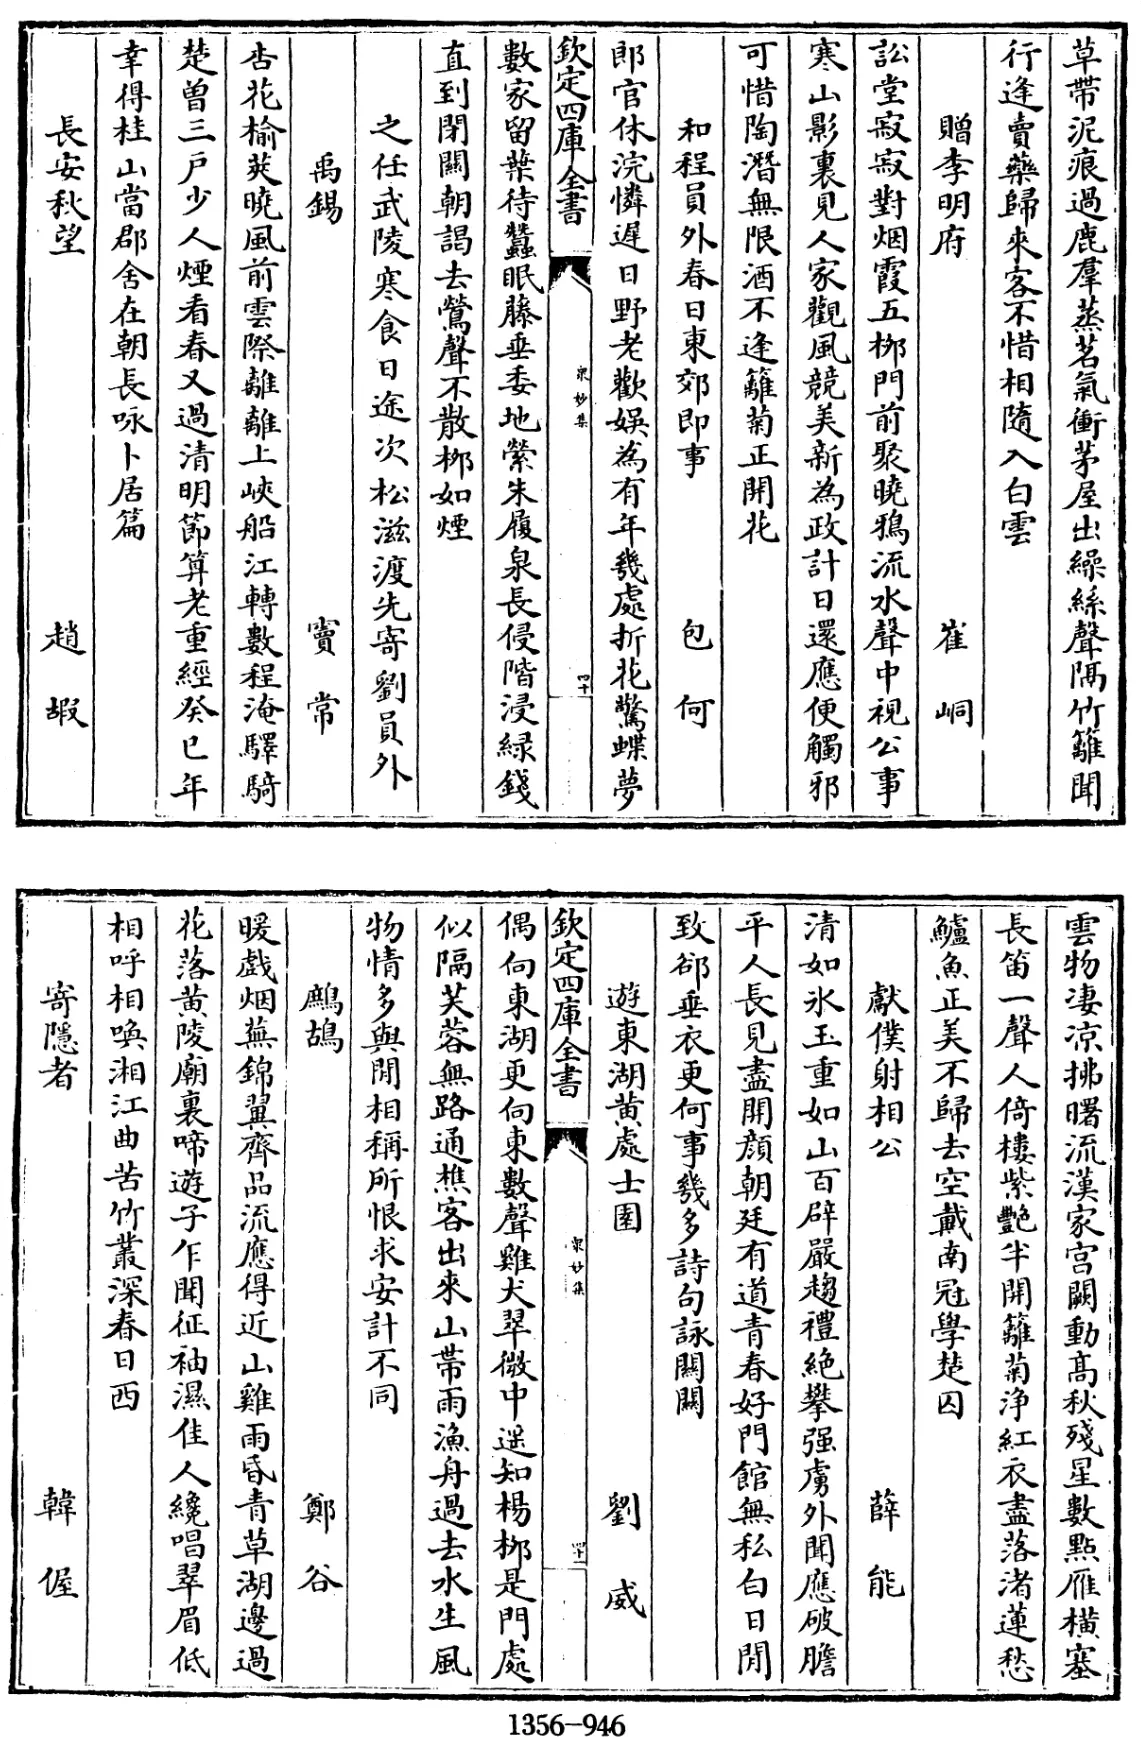 草帶泥痕過鹿羣蒸茗氣衝茅屋出繰絲聲隔竹籬聞
行逢賣藥歸來客不惜相隨入白雲
贈李明府 崔峒
訟堂寂寂對烟霞五栁門前聚曉鴉流水聲中視公事
寒山影裏見人家觀風競美新為政計日還應便觸邪
可惜陶潛無限酒不逢籬菊正開花
和程員外春日東郊即事 包何
郎官休浣憐遲日野老歡娛為有年幾處折花驚蝶夢
欽定四庫全書
衆妙集
四十
數家留葉待蠶眠藤垂委地縈朱履泉長侵階浸緑錢
直到閉關朝謁去鶯聲不散栁如煙
之任武陵寒食日途次松滋渡先寄劉員外
禹錫 竇常
杏花榆莢曉風前雲際離離上峽船江轉數程淹驛騎
楚曾三戸少人煙看春又過清明節算老重經癸巳年
幸得桂山當郡舍在朝長咏卜居篇
長安秋望 趙嘏
雲物淒凉拂曙流漢家宫闕動髙秋殘星數點雁橫塞
長笛一聲人倚樓紫艷半開籬菊浄紅衣盡落渚蓮愁
鱸魚正美不歸去空戴南冠學楚囚
獻僕射相公 薛能
清如氷玉重如山百辟嚴趨禮絶攀强虜外聞應破膽
平人長見盡開顔朝廷有道青春好門館無私白日閒
致郤垂衣更何事幾多詩句詠關關
遊東湖黄處士園 劉威
偶向東湖更向東數聲雞犬翠微中遥知楊栁是門處
欽定四庫全書
衆妙集
四十
似隔芙蓉無路通樵客出來山帶雨漁舟過去水生風
物情多與閒相稱所恨求安計不同
鷓鴣 鄭谷
暖戲烟蕪錦翼齊品流應得近山雞雨昏青草湖邊過
花落黄陵廟裏啼遊子乍聞征袖濕佳人纔唱翠眉低
相呼相喚湘江曲苦竹叢深春日西
寄隱者 韓偓
1356-946